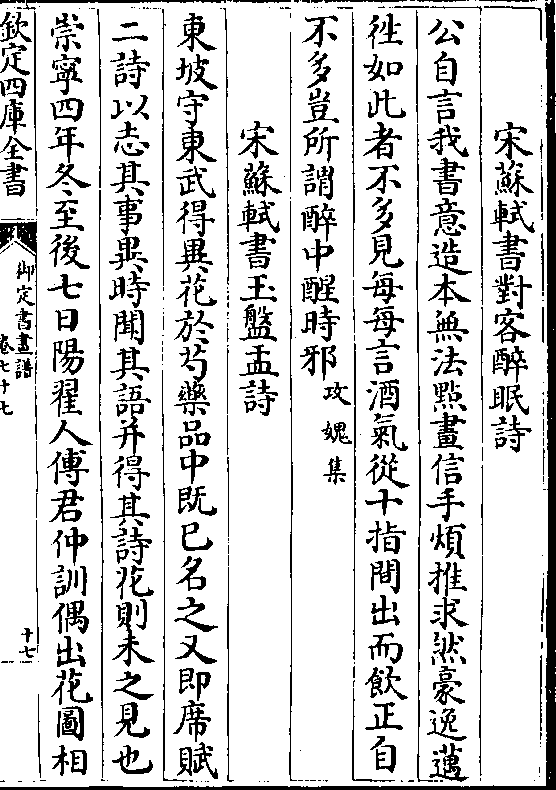 宋蘇軾書對客醉眠詩
公自言我書意造本無法點畫信手煩推求然豪逸邁
徃如此者不多見每每言酒氣從十指間出而飲正自
不多豈所謂醉中醒時邪攻媿集
宋蘇軾書玉盤盂詩
東坡守東武得異花於芍藥品中既已名之又即席賦
二詩以志其事異時聞其語并得其詩花則未之見也
崇寧四年冬至後七日陽翟人傅君仲訓偶出花圖相
欽定四庫全書
御定書畫譜
卷七十七
十七